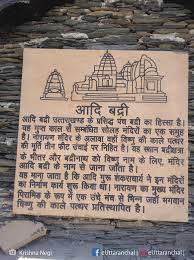 आदि बद्री
आदि बद्री उत्तराखण्ड के प्रसिद्ध पंच बद्री का हिस्सा है।
यह गुप्त काल से सम्बंधित सोलह मंदिरों का एक समूह
है। नारायण मंदिर के अलावा यहाँ विष्णु की काले पत्थर
की मूर्ति तीन फीट ऊंचाई पर निहित है। यह स्थान बद्रीक्षेत्र
के भीतर और बद्रीनाथ को विष्णु नाम के लिए, मंदिर
आदि बद्री के नाम से जाना जाता है।
यह माना जाता है कि आदि गुरू शंकराचार्य ने इन मंदिरों
का निर्माण कार्य शुरू किया था। नारायण का मुख्य मंदिर
पिरामिड के रूप में एक उंचे मंच से मिन्न जहाँ भगवान
विष्णु की काले पत्थर प्रतिस्थापित है।
Krishna Negi
eUttaranchal
eUttaranchal